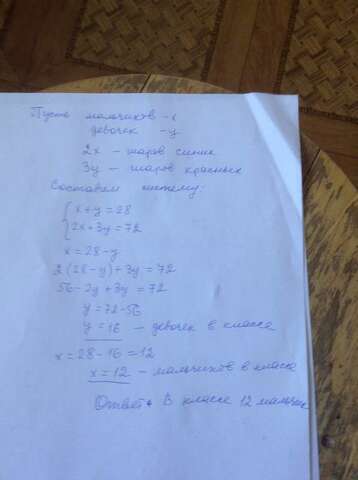 Пусть мальчиков - x
девочек - y
2x - шаров синих
3y - шаров красных
Составим систему:
{ x + y = 28
2x + 3y = 72
x = 28 - y
2(28 - y) + 3y = 72
56 - 2y + 3y = 72
y = 72 - 56
y = 16 - девочек в классе
x = 28 - 16 = 12
x = 12 - мальчиков в классе
Ответ: В классе 12 мальчик